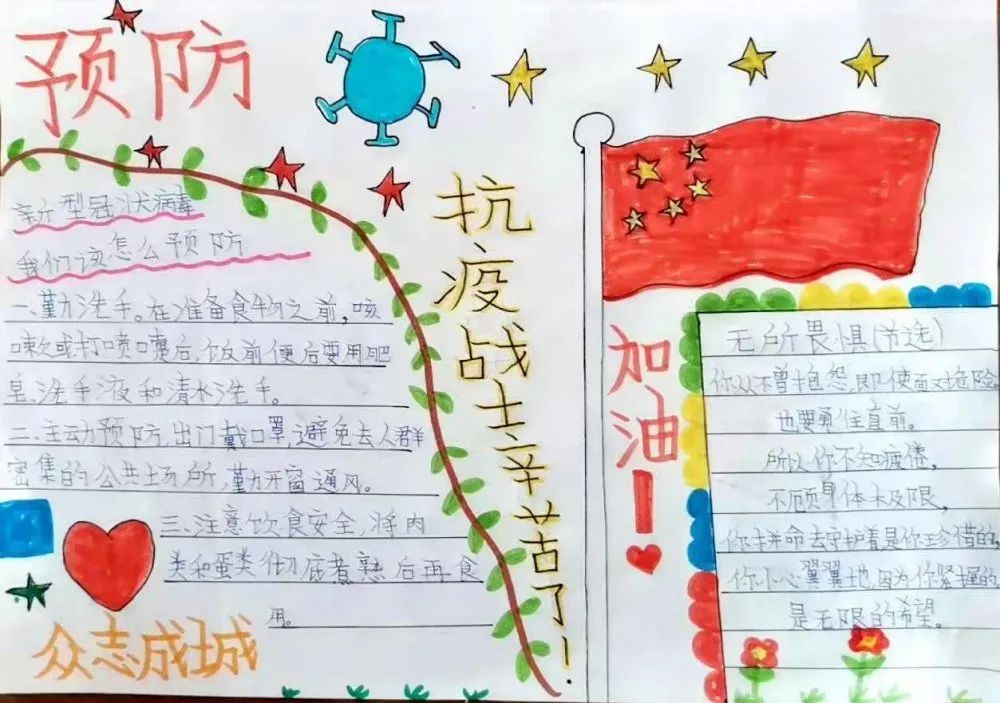 预防
新型冠状病毒
我们该怎么预防
一、勤洗手。在准备食物之前,咳
嗽或打喷嚏后,饭前便后要用肥
皂,洗手液和清水洗手。
二、主动预防,出门戴口罩,避免去人群
密集的公共场所,勤开窗通风。
三、注意饮食安全,将肉
类和蛋类彻底煮熟后再食
用。
众志成城
抗疫战士辛苦了!
加油!
无所畏惧(节选)
你从不曾抱怨,即使面对危险
也要勇往直前。
所以你不知疲倦,
不顾身体极限,
你拼命去守护着是你珍惜的,
你小心翼翼地,因为你紧握的
是无限的希望。